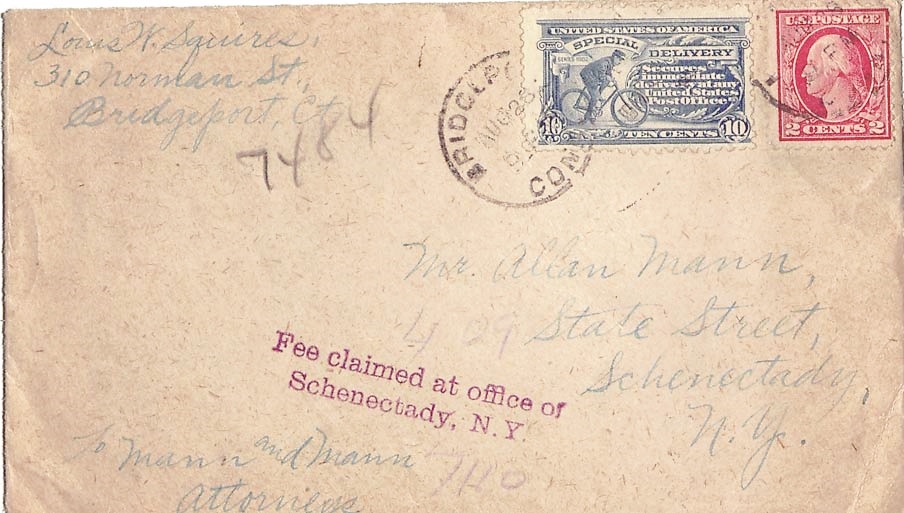 Louis W. Squires,
310 Norman St.,
Bridgeport, Ct.
7484
UNITED STATES OF AMERICA
SPECIAL DELIVERY
SERIES 1902
Secures
immediate
delivery at any
United States
Post Office
10 TEN CENTS 10
U.S. POSTAGE
2 CENTS 2
CONN
Mr. Allan Mann,
409 State Street,
Schenectady,
N.Y.
Fee claimed at office of
Schenectady, N. Y
To Mann and Mann
Attorneys
740